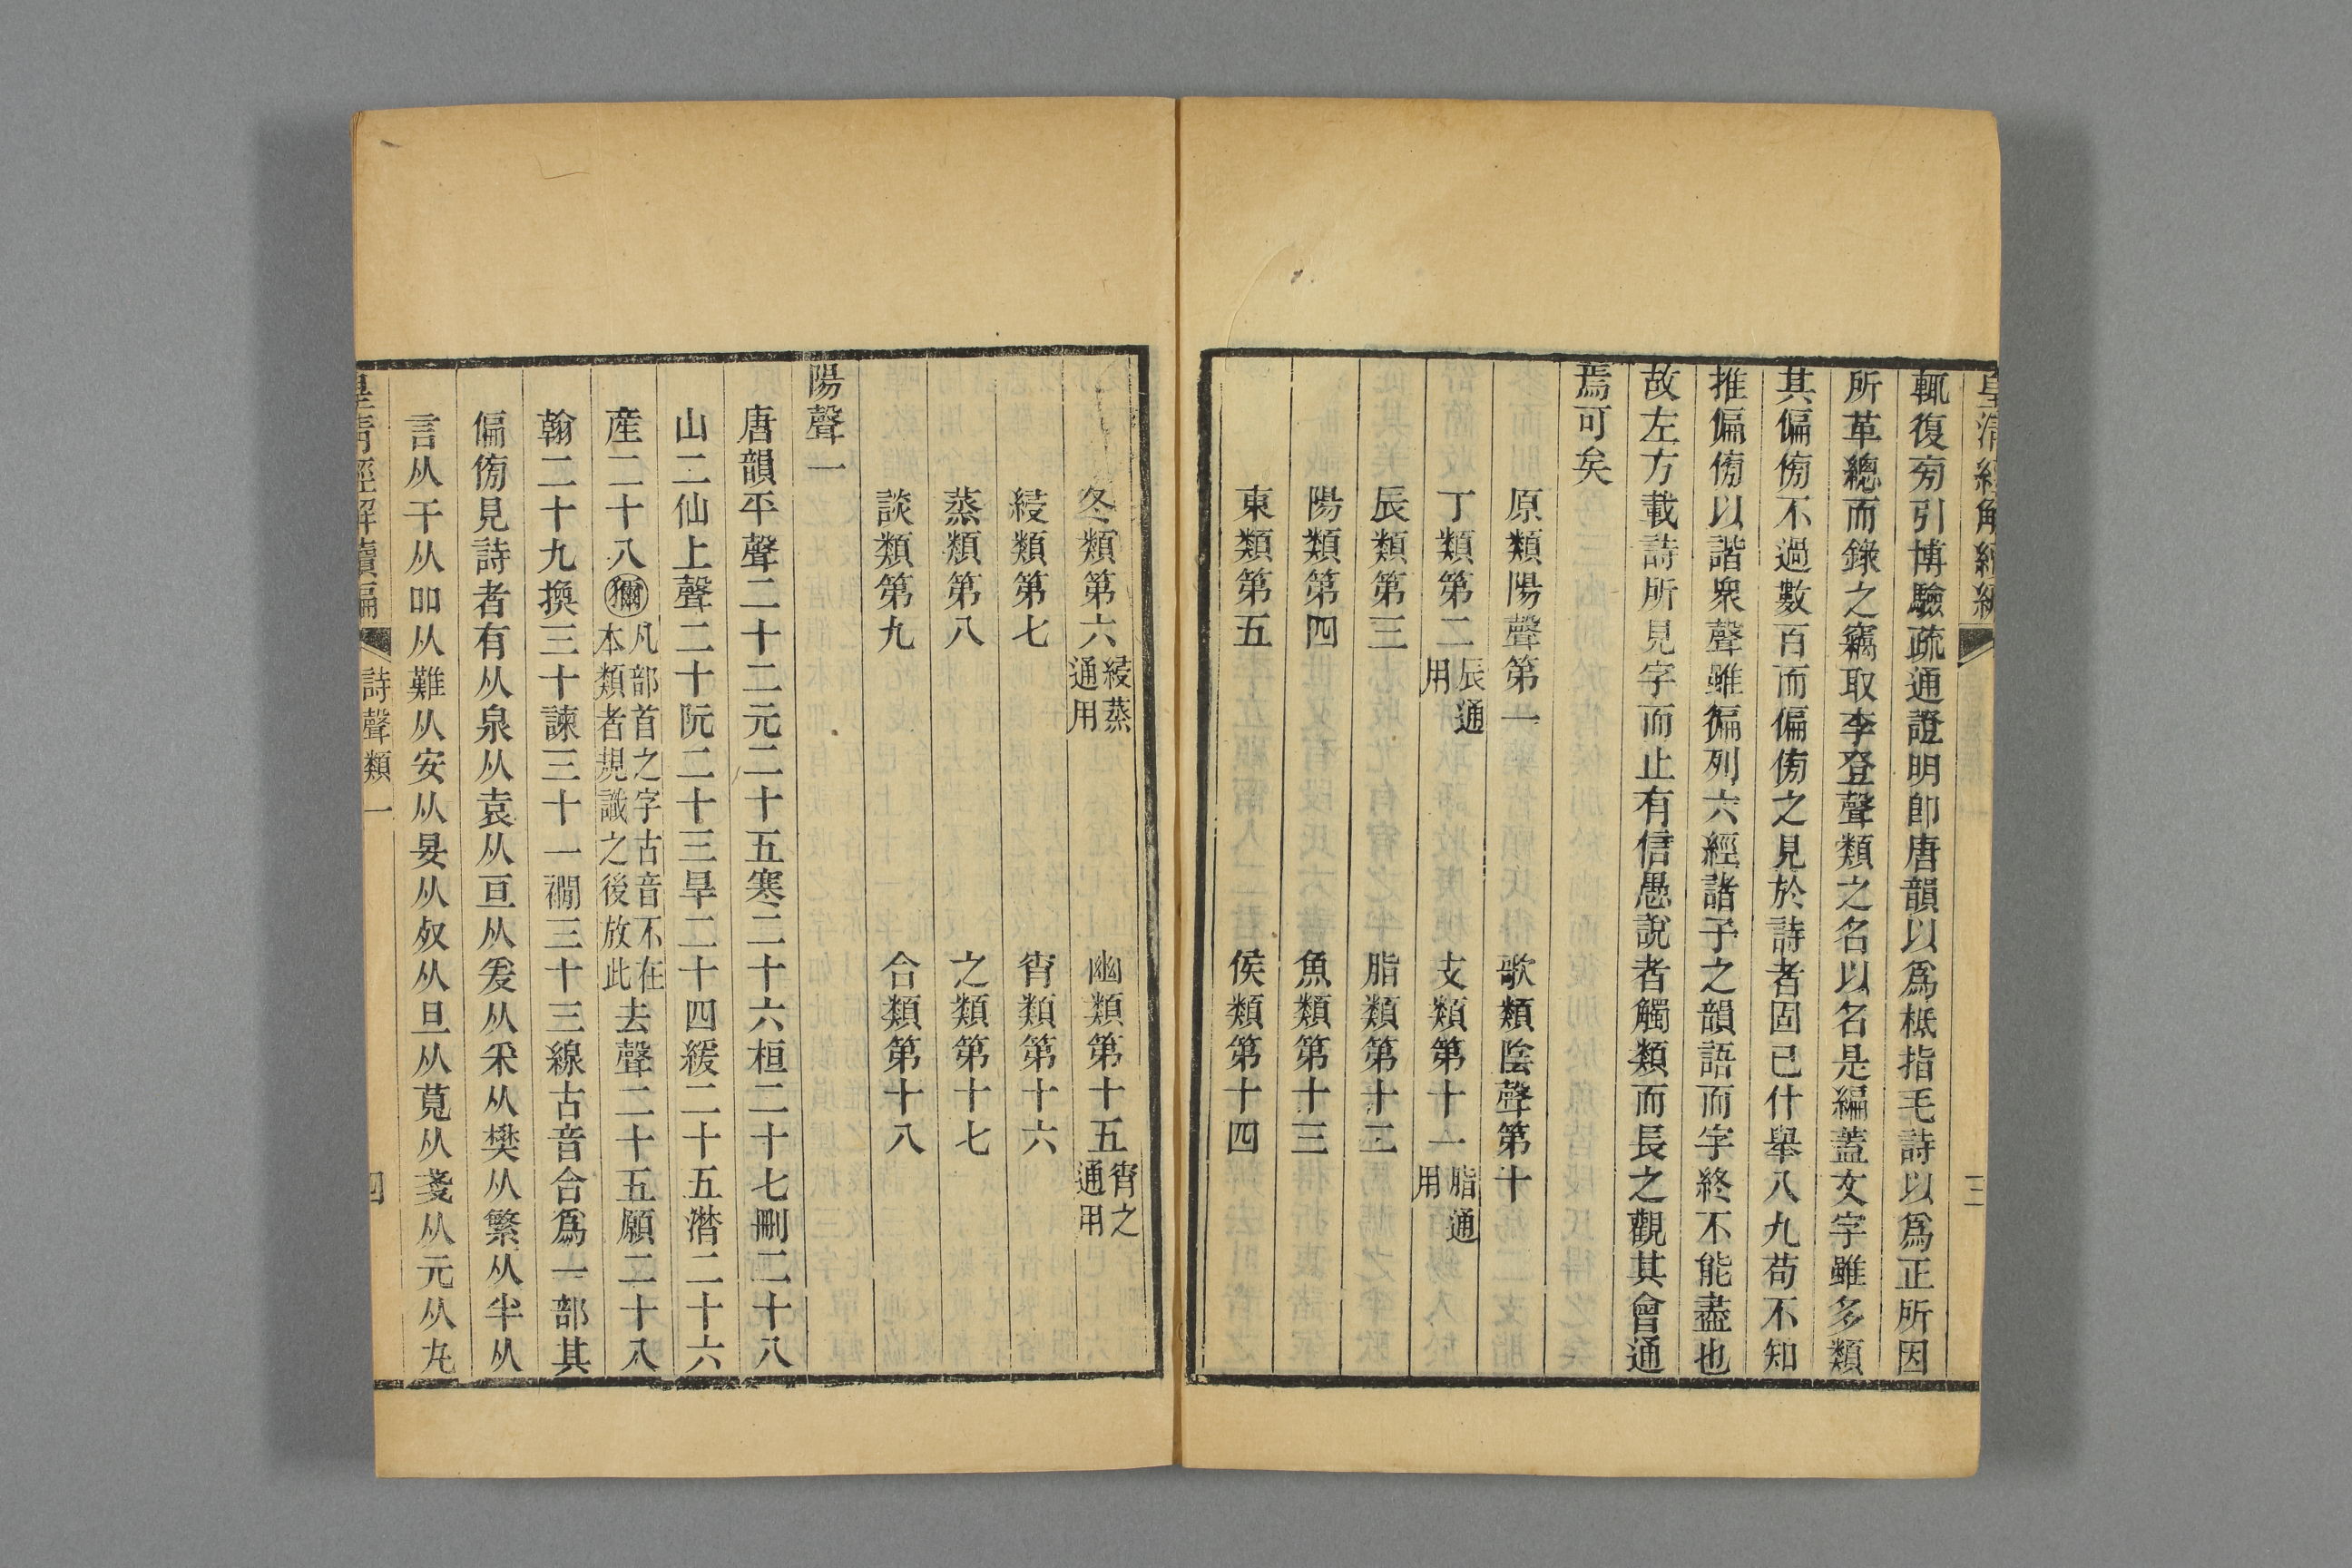 皇清經解續編
三
輒復旁引博驗疏通證明卽唐韻以爲柢指毛詩以爲正所因
所革總而錄之竊取李登聲類之名以名是編蓋文字雖多類
其偏㑄不過數百而偏㑄之見於詩者固已什舉八九苟不知
推偏㑄以諧衆聲雖徧列六經諸子之韻語而字終不能盡也
故左方載詩所見字而止有信愚說者觸類而長之觀其會通
焉可矣
原類陽聲第一　歌類陰聲第十
丁類第二辰通用　支類第十一脂通用
辰類第三　脂類第十二
陽類第四　魚類第十三
東類第五　侯類第十四
冬類第六綅蒸通用　幽類第十五宵之通用
綅類第七　宵類第十六
蒸類第八　之類第十七
談類第九　合類第十八
陽聲一
唐韻平聲二十二元二十五寒二十六桓二十七刪二十八
山二仙上聲二十阮二十三旱二十四緩二十五潸二十六
產二十八獮凡部首之字古音不在本類者規識之後放此去聲二十五願二十八
翰二十九換三十諫三十一襉三十三線古音合爲一部其
偏㑄見詩者有从泉从袁从亘从爰从釆从樊从繁从半从
言从干从吅从難从安从晏从奴从旦从莧从戔从元从丸
皇清經解續編
詩聲類一
四